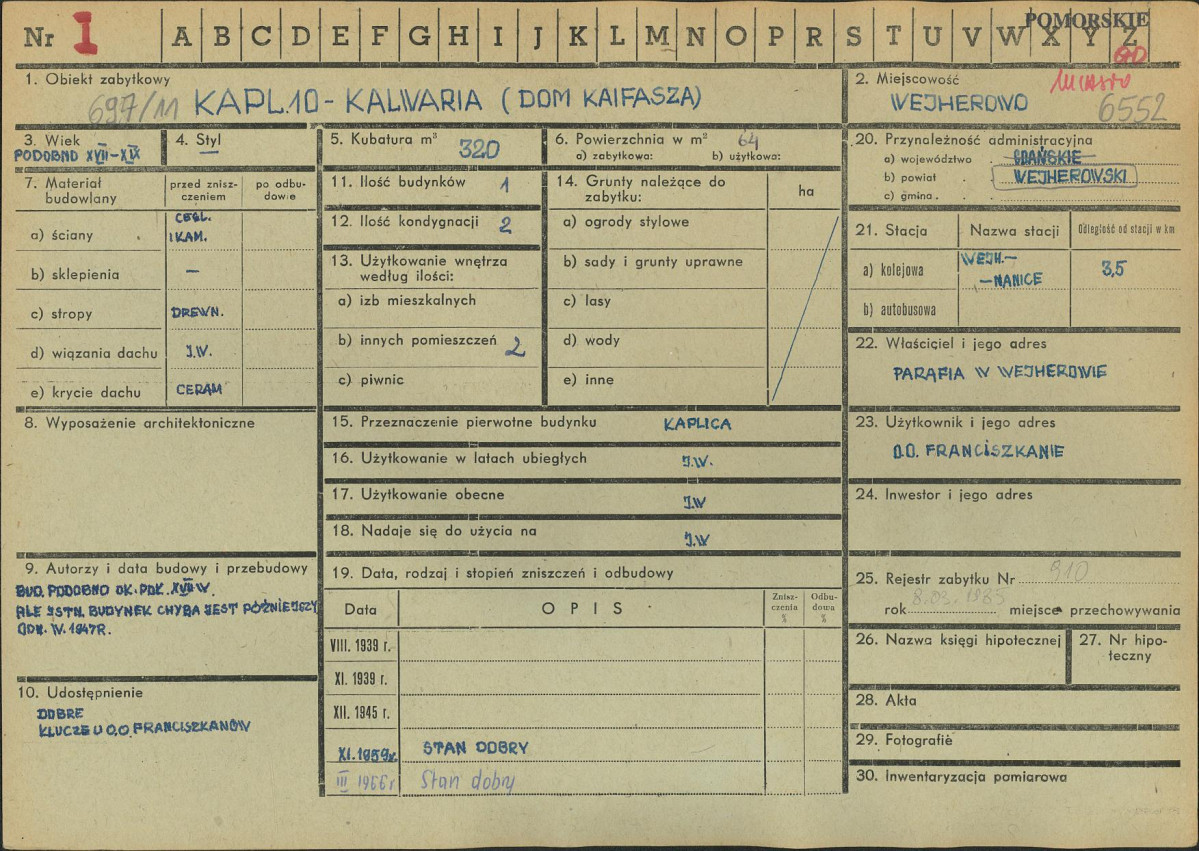 POMORSKIE
Nr 1 A B C D E F G H I J K L M N O P R S T U V W X Y Z
GD
1. Obiekt zabytkowy
697/11 KAPL.10 - KALWARIA (DOM KAIFASZA)
2. Miejscowość miasto
WEJHEROWO 6552
3. Wiek
PODOBNO XVII-XIX
4. Styl
—
5. Kubatura m³ 320
6. Powierzchnia w m² 64
a) zabytkowa: b) użytkowa:
7. Materiał budowlany
przed zniszczeniem
po odbudowie
a) ściany CEGL. I KAM.
b) sklepienia —
c) stropy DREWN.
d) wiązania dachu J.W.
e) krycie dachu CERAM
8. Wyposażenie architektoniczne
9. Autorzy i data budowy i przebudowy
BUD. PODOBNO OK. POŁ. XVII W.
ALE ISTN. BUDYNEK CHYBA JEST PÓŹNIEJSZY
ODN. W. 1947R.
10. Udostępnienie
DOBRE
KLUCZE U O.O. FRANCISZKANÓW
11. Ilość budynków 1
12. Ilość kondygnacji 2
13. Użytkowanie wnętrza
według ilości:
a) izb mieszkalnych
b) innych pomieszczeń 2
c) piwnic
14. Grunty należące do
zabytku:
ha
a) ogrody stylowe
b) sady i grunty uprawne
c) lasy
d) wody
e) inne
15. Przeznaczenie pierwotne budynku KAPLICA
16. Użytkowanie w latach ubiegłych J.W.
17. Użytkowanie obecne J.W
18. Nadaje się do użycia na J.W
19. Data, rodzaj i stopień zniszczeń i odbudowy
Data OPIS Zniszczenia % Odbudowa %
VIII. 1939 r.
XI. 1939 r.
XII. 1945 r.
XI. 1959r. STAN DOBRY
III 1966 r Stan dobry
20. Przynależność administracyjna
a) województwo . GDAŃSKIE
b) powiat . WEJHEROWSKI
c) gmina . .
21. Stacja Nazwa stacji Odległość od stacji w km
a) kolejowa WEJH.-
-NANICE 3,5
b) autobusowa
22. Właściciel i jego adres
PARAFIA W WEJHEROWIE
23. Użytkownik i jego adres
O.O. FRANCISZKANIE
24. Inwestor i jego adres
25. Rejestr zabytku Nr 910
rok 8.03.1985 miejsce przechowywania
26. Nazwa księgi hipotecznej
27. Nr hipoteczny
28. Akta
29. Fotografie
30. Inwentaryzacja pomiarowa